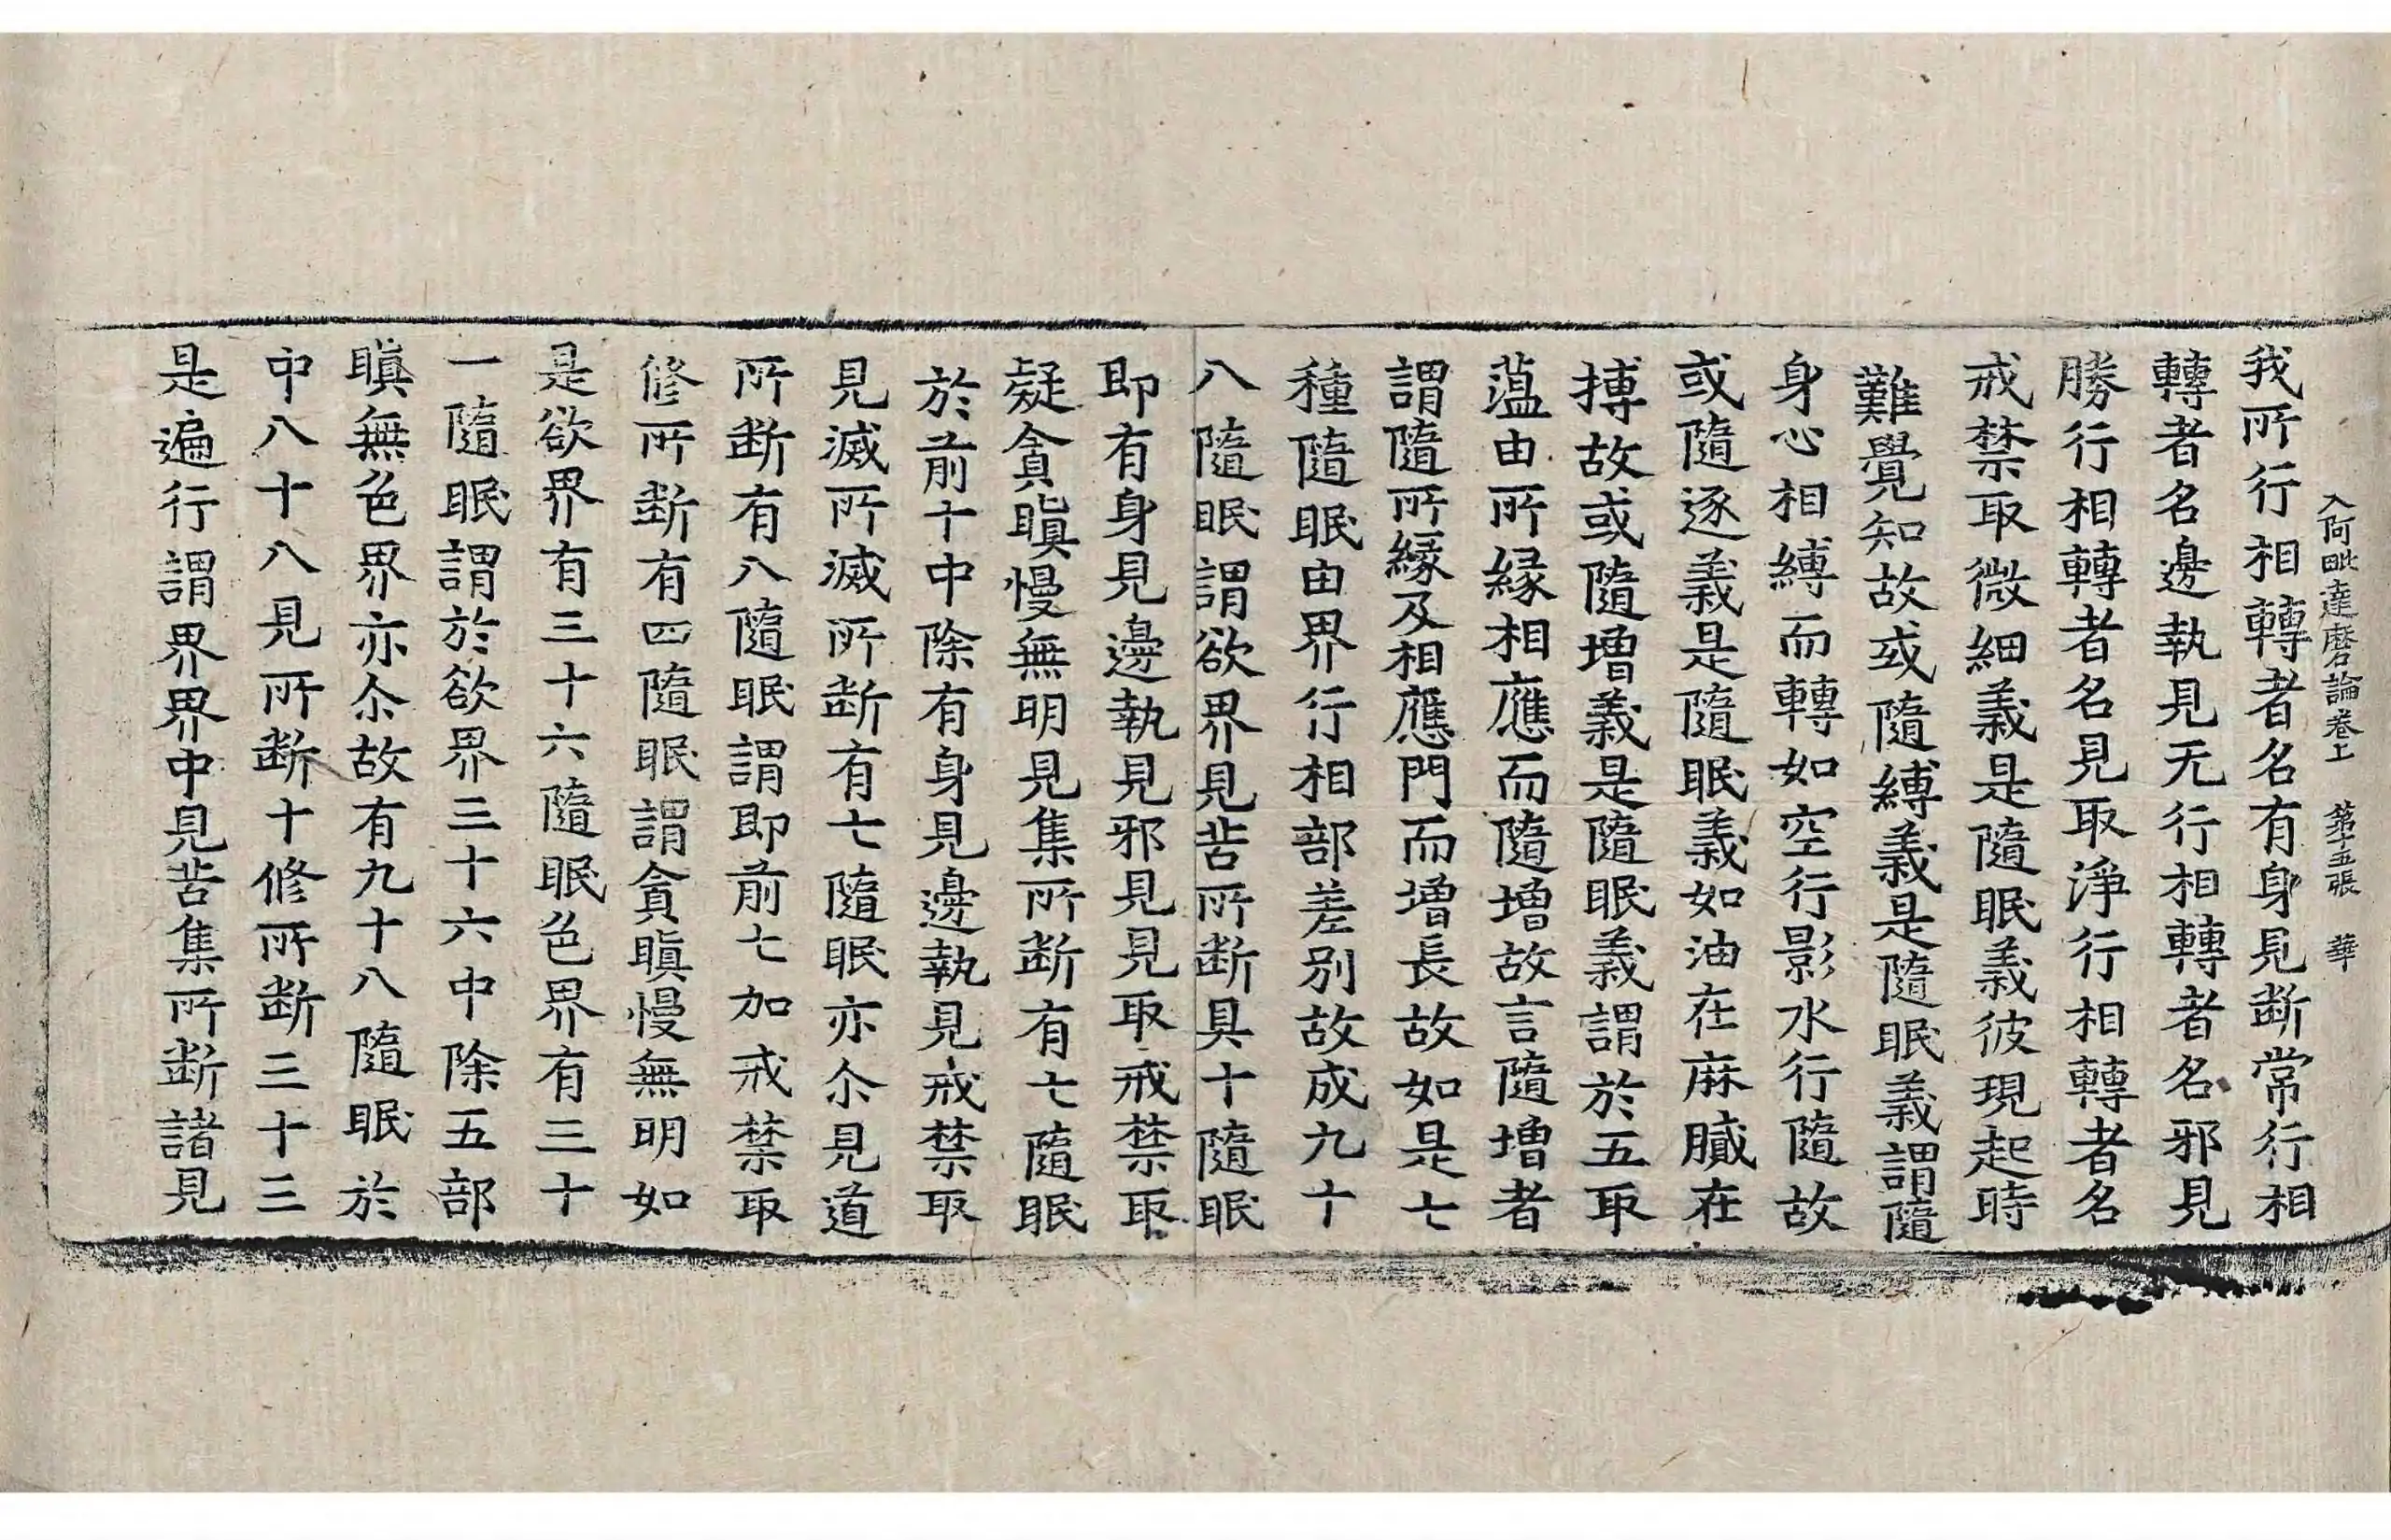 入阿毗達磨論卷上　第十五張　華
我所行相轉者名有身見断常行相
轉者名邊執見无行相轉者名邪見
勝行相轉者名見取淨行相轉者名
戒禁取微細義是隨眠義彼現起時
難覺知故或隨縛義是隨眠義謂隨
身心相縛而轉如空行影水行隨故
或隨逐義是隨眠義如油在麻膩在
摶故或隨增義是隨眠義謂於五取
蕰由所緣相應而隨增故言隨增者
謂隨所緣及相應門而增長故如是七
種隨眠由界行相部差別故成九十
八隨眠謂欲界見苦所断具十隨眠
即有身見邊執見邪見見取戒禁取
疑貪瞋慢無明見集所断有七隨眠
於前十中除有身見邊執見戒禁取
見滅所滅所断有七隨眠亦尒見道
所断有八隨眠謂即前七加戒禁取
修所断有四隨眠謂貪瞋慢無明如
是欲界有三十六隨眠色界有三十
一隨眠謂於欲界三十六中除五部
瞋無色界亦尒故有九十八隨眠於
中八十八見所断十修所断三十三
是遍行謂界界中見苦集所断諸見